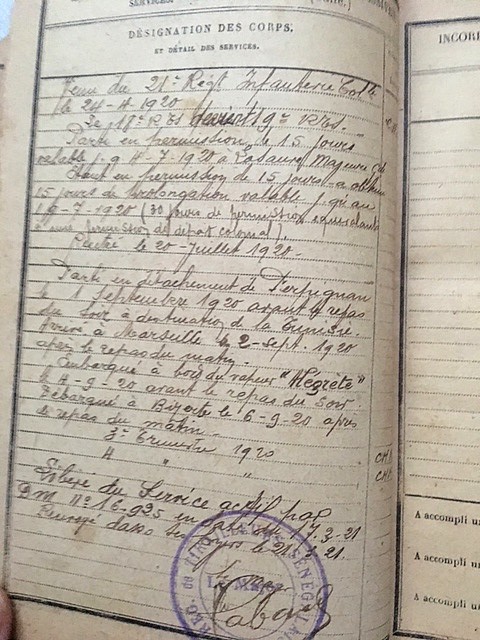 SERVICES
DÉSIGNATION DES CORPS.
ET DÉTAIL DES SERVICES.
INCOR
Venu du 21e Régt Infanterie Cole
le 24-4 1920
Le 18e R.T.S devient 19e R.T.S.
Parti en permission de 15 jours
valable j. q 4-7-1920 à
Etant en permission de 15 jours a obtenu
15 jours de prolongation valable j. qu'au
19-7-1920 (30 jours de permission équivalents
à une permission de départ colonial).
Rentré le 20-Juillet 1920.
Parti en détachement de Perpignan
le 1 Septembre 1920 avant le repas
du soir à destination de la Tunisie.
Arrivé à Marseille le 2-Sept. 1920
après le repas du matin.
Embarqué à bord du vapeur "Negrete"
le 4-9-20 avant le repas du soir
Débarqué à Bizerte le 6-9-20 après
le repas du matin.
3e trimestre 1920
4 " "
Libéré du Service actif par
DM no 16.925 en date du 17-3-21
TIRAILLEURS SÉNÉGALAIS
LE MAJOR
A accompli un
A accompli un
A accompli un